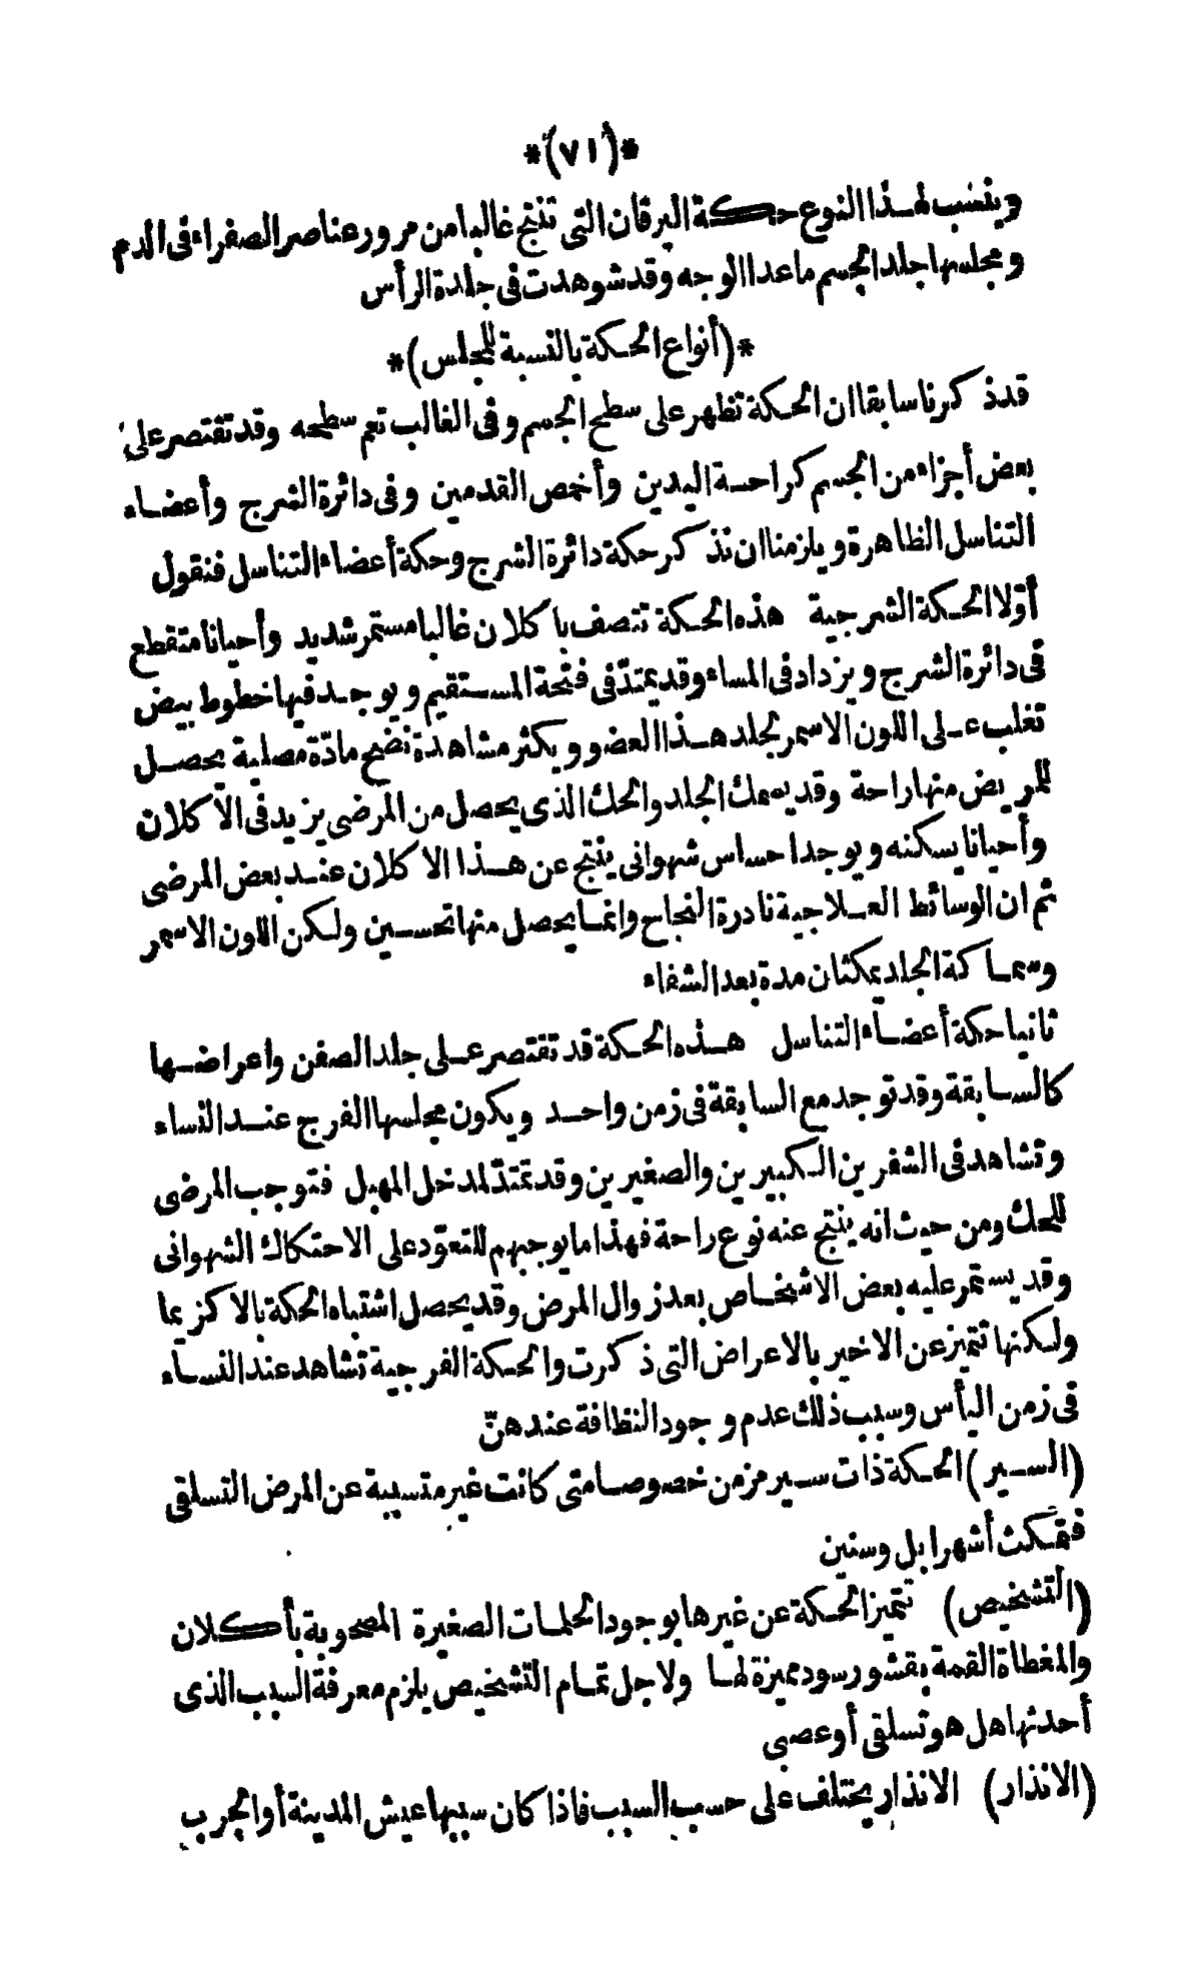 *(٧١)*
وينسب لهذا النوع حكة اليرقان التى تنتج غالبا من مرور عناصر الصفراء فى الدم
ومجلسها جلد الجسم ماعدا الوجه وقد شوهدت فى جلدة الرأس
*(أنواع الحكة بالنسبة للمجلس)*
قد ذكرنا سابقا ان الحكة تظهر على سطح الجسم وفى الغالب تعم سطحه وقد تقتصر على
بعض أجزاء من الجسم كراحة اليدين وأخمص القدمين وفى دائرة الشرج وأعضاء
التناسل الظاهرة ويلزمنا ان نذكر حكة دائرة الشرج وحكة أعضاء التناسل فنقول
أوّلا الحكة الشرجية هذه الحكة تتصف باكلان غالبا مستمر شديد وأحيانا متقطع
فى دائرة الشرج ويزداد فى المساء وقد يمتدّ فى فتحة المستقيم ويوجد فيها خطوط بيض
تغلب على اللون الاسمر لجلد هذا العضو ويكثر مشاهدة نضح مادّة مصلية يحصل
للمريض منها راحة وقد يسمك الجلد والحك الذى يحصل من المرضى يزيد فى الاكلان
وأحيانا يسكنه ويوجد احساس شهوانى ينتج عن هذا الاكلان عند بعض المرضى
ثم ان الوسائط العلاجية نادرة النجاح وانما يحصل منها تحسين ولكن اللون الاسمر
وسماكة الجلد يمكثان مدة بعد الشفاء
ثانيا حكة أعضاء التناسل هذه الحكة قد تقتصر على جلد الصفن واعراضها
كالسابقة وقد توجد مع السابقة فى زمن واحد ويكون مجلسها الفرج عند النساء
وتشاهد فى الشفرين الكبيرين والصغيرين وقد تمتدّ لمدخل المهبل فتوجب المرضى
للحك ومن حيث انه ينتج عنه نوع راحة فهذا ما يوجبهم للتعوّد على الاحتكاك الشهوانى
وقد يستمر عليه بعض الاشخاص بعد زوال المرض وقد يحصل اشتباه الحكة بالاكزيما
ولكنها تتميز عن الاخير بالاعراض التى ذكرت والحكة الفرجية تشاهد عند النساء
فى زمن اليأس وسبب ذلك عدم وجود النظافة عندهنّ
(السير) الحكة ذات سير مزمن خصوصا متى كانت غير متسببة عن المرض التسلقى
فتمكث أشهرا بل وسنين
(التشخيص) تتميز الحكة عن غيرها بوجود الحلمات الصغيرة المصحوبة بأكلان
والمغطاة القمة بقشور سود مميزة لها ولاجل تمام التشخيص يلزم معرفة السبب الذى
أحدثها هل هو تسلقى أو عصبى
(الانذار) الانذار يختلف على حسب السبب فاذا كان سببها عيش المدينة أو الجرب